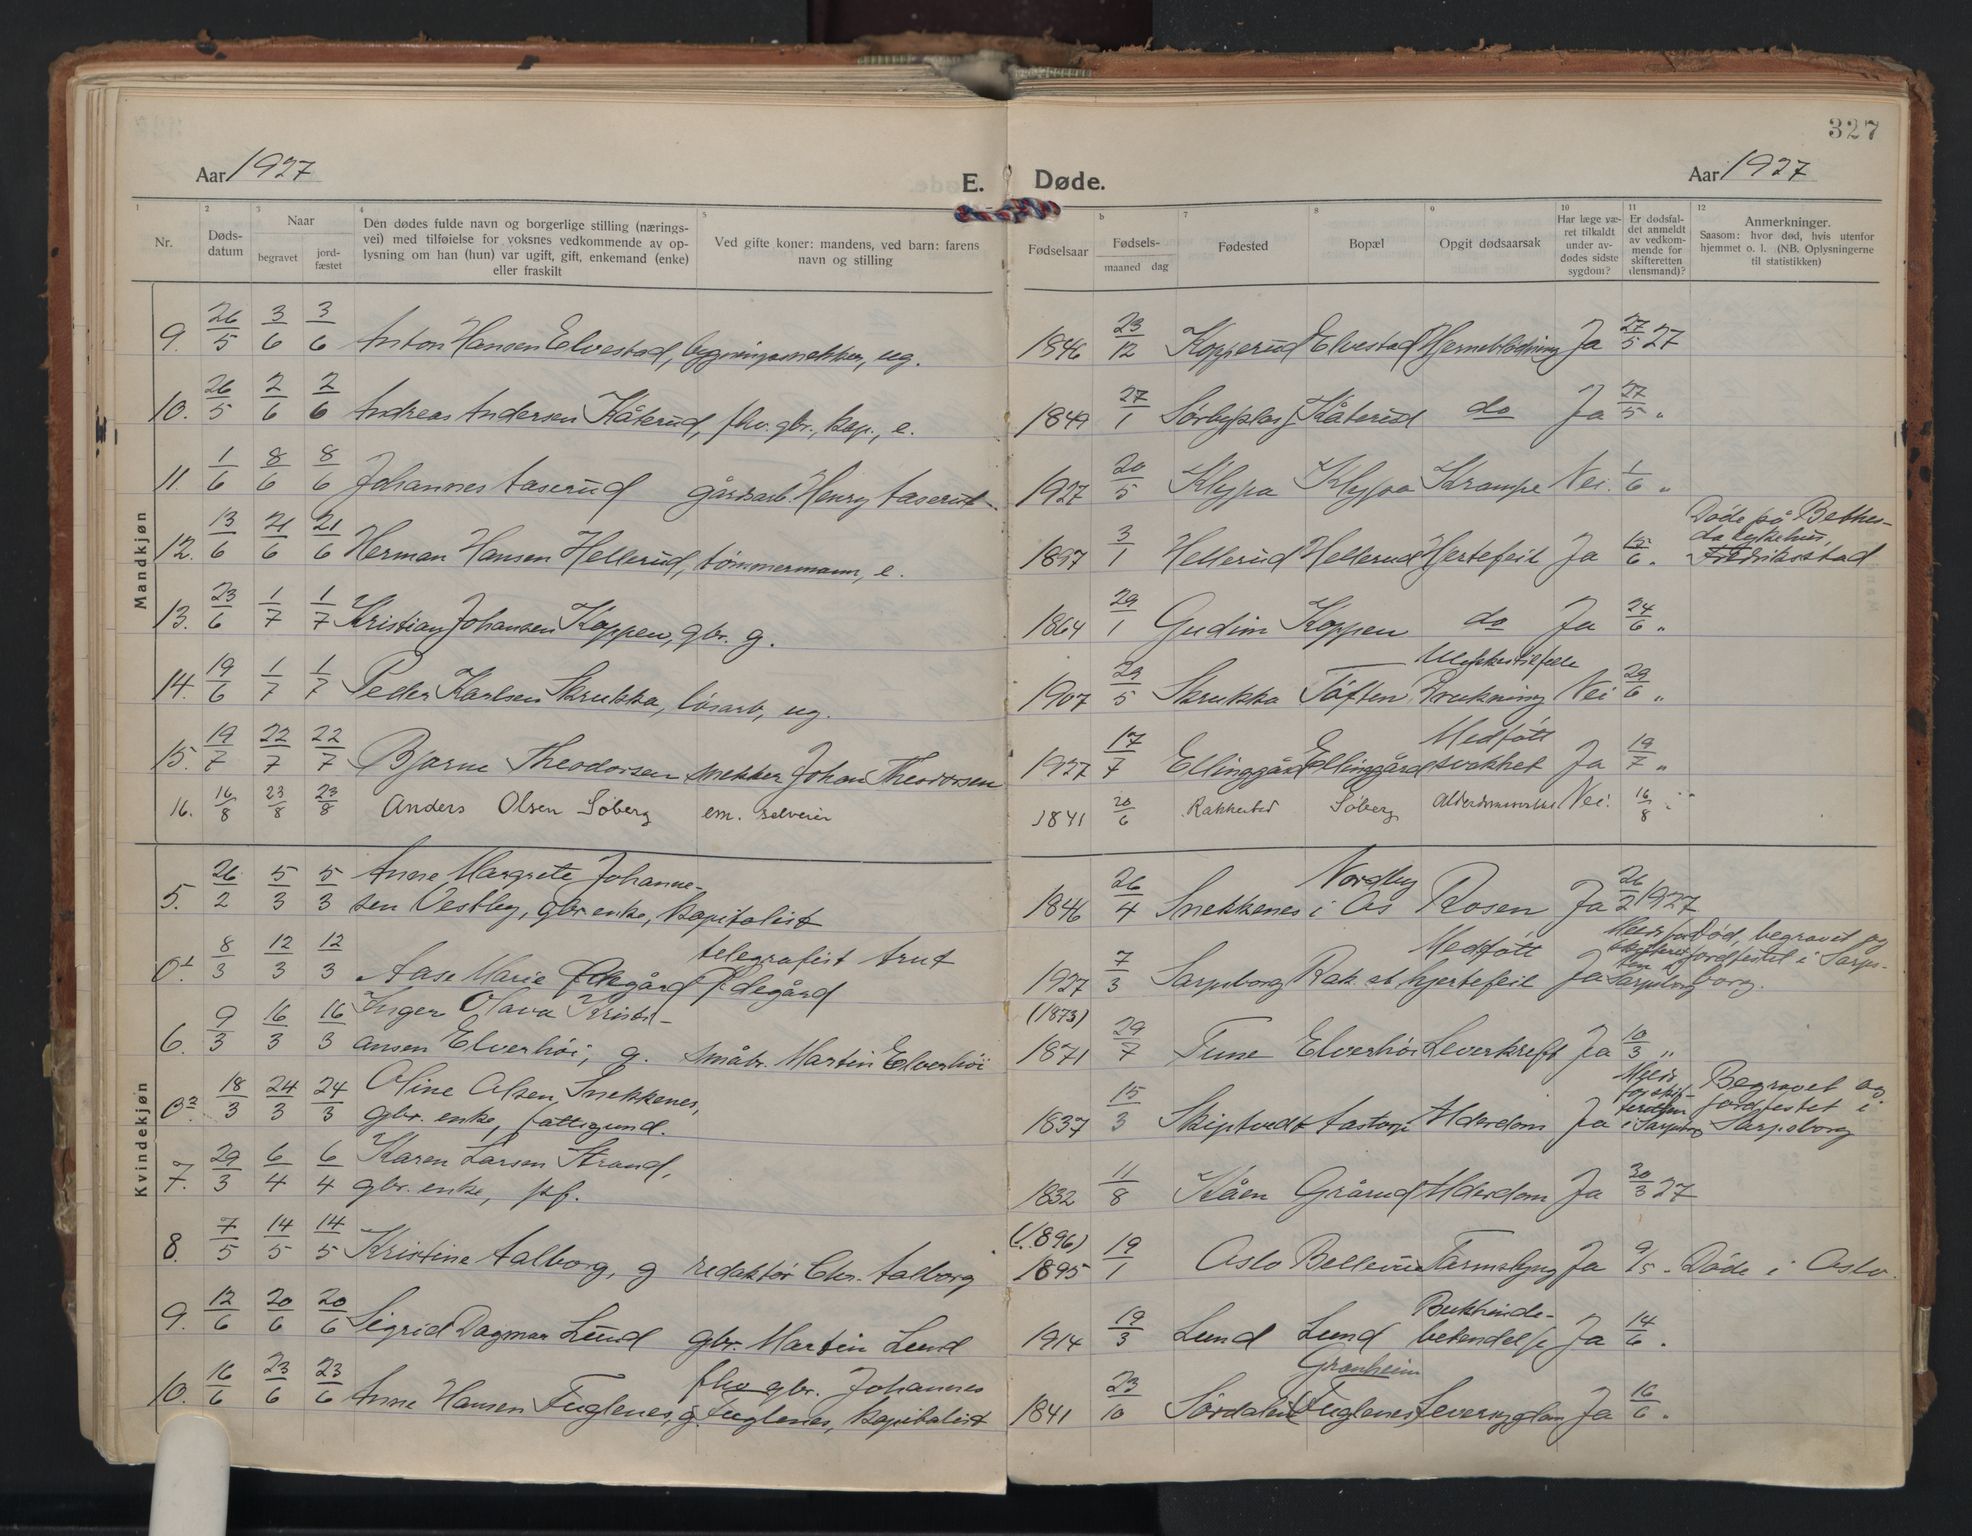 327
Aar 1927 E. Døde. Aar 1927
1 2 3 4 5 6 7 8 9 10 11 12
Nr. Døds-datum Naar begravet jord-fæstet Den dødes fulde navn og borgerlige stilling (nærings-vei) med tilføielse for voksnes vedkommende av op-lysning om han (hun) var ugift, gift, enkemand (enke) eller fraskilt Ved gifte koner: mandens, ved barn: farens navn og stilling Fødselsaar Fødsels- maaned dag Fødested Bopæl Opgit dødsaarsak Har læge væ-ret tilkaldt under av-dødes sidste sygdom? Er dødsfal-det anmeldt av vedkom-mende for skifteretten (lensmand)? Anmerkninger. Saasom: hvor død, hvis utenfor hjemmet o. l. (NB. Oplysningerne til statistikken)
Mandkjøn
9. 26/5 3/6 3/6 Anton Hansen Elvestad, bygningssnekker, ug. 1846 23/12 Kopperud Elvestad Hjerneblødning Ja 27/5 27
10. 26/5 2/6 2/6 Andreas Andersen Kåterud, fhv. gbr., kap., e. 1849 27/1 Sørbyplas Kåterud do Ja 27/5 "
11. 1/6 8/6 8/6 Johannes Aaserud gårdsarb. Henry Aaserud 1927 20/5 Klypa Klypa Krampe Nei. 1/6 "
12. 13/6 21/6 21/6 Herman Hansen Hellerud, tømmermann, e. 3/1 Hellerud Hellerud Hjertefeil Ja 15/6 " Døde på Bethes-
da sykehus,
Fredriksstad
13. 23/6 1/7 1/7 Kristian Johansen Koppen, gbr. g. 1864 29/1 Gudim Koppen do Ja 24/6 "
14. 19/6 1/7 1/7 Peder Karlsen Skrukka, løsarb, ug. 1907 29/5 Skrukka Tøften Ulykkestilfelle
Drukning Nei 29/6 "
15. 19/7 22/7 22/7 Bjarne Theodorsen snekker Johan Theodorsen 1927 17/7 Ellinggård Ellinggård Medføtt
svakhet Ja 19/7 "
16. 16/8 23/8 23/8 Anders Olsen Søberg em. selveier 1841 20/6 Rakkestad Søberg Alderdomssvakhet Nei. 16/8 "
Kvindekjøn
5. 26/2 5/3 5/3 Anne Margrete Johanne-
sen Vestby, gbr enke, kapitalist 1846 26/4 Snekkenes Nordby
i Ås Rosen Ja 26/2 1927
0¹ 8/3 12/3 12/3 Aase Marie Ødegård telegrafist Arut
Ødegård 1927 7/3 Sarpsborg Rak. st. Medføtt
hjertefeil Ja Meds for
skifteret
ten i
Sarpsborg Død, begravet og
jordfestet i Sarps-
borg.
6. 9/3 16/3 16/3 Inger Olava Kristi-
ansen Elverhøi, g. småbr. Martin Elverhøi (1873)
1871 29/7 Tune Elverhøi Leverkreft Ja 10/3 "
0² 18/3 24/3 24/3 Oline Olsen Snekkenes,
gbr. enke, fattigund. 1837 15/3 Skiptvedt Aastorp Alderdom Ja Meds
for skif-
teretten
i Sarpsborg Begravet og
jordfestet i
Sarpsborg
7. 29/3 6/4 6/4 Karen Larsen Strand,
gbr. enke, pf. 1832 11/8 Kåen Grårud Alderdom Ja 30/3 27
8. 7/5 14/5 14/5 Kristine Aalborg, g redaktør Chr. Aalborg (1896)
1895 19/1 Oslo Bellevue Tarmslyng Ja 9/5 " Døde i Oslo.
9. 12/6 20/6 20/6 Sigrid Dagmar Lund gbr. Martin Lund 1914 19/3 Lund Lund Bukhinde-
betendelse Ja 14/6 "
10. 16/6 23/6 23/6 Anne Hansen Fuglenes, g. fhv gbr. Johannes
Fuglenes, kapitalist 1841 23/10 Sørdalen Granheim
Fuglenes Leversygdom Ja 16/6 "